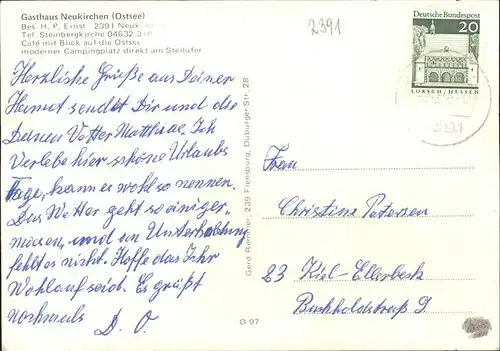 Gasthaus Neukirchen (Ostsee)
Bes. H. P. Ernst 2391 Neuk
Tel. Steinbergkirche 04632
Café mit Blick auf die Ostsee
moderner Campingplatz direkt am Steilufer
2391
Deutsche Bundespost
20
LORSCH/HESSEN
Herzliche Grüße aus Deiner
Heimat sendet Dir und die
Deinen Vetter Matthiae. Ich
Verlebe hier schöne Urlaubs
Tage, kann es wohl so nennen.
Das Wetter geht so einiger-
maßen, und an Unterhaltung
fehlt es nicht. Hoffe das Ihr
Wohlauf seid. Es grüßt
nochmals D. O.
Gerd Remmer, 239 Flensburg, Duburger Str. 28
O 97
Frau
Christine Petersen
23 Kiel-Ellerbek
Buchholdstraß 9.